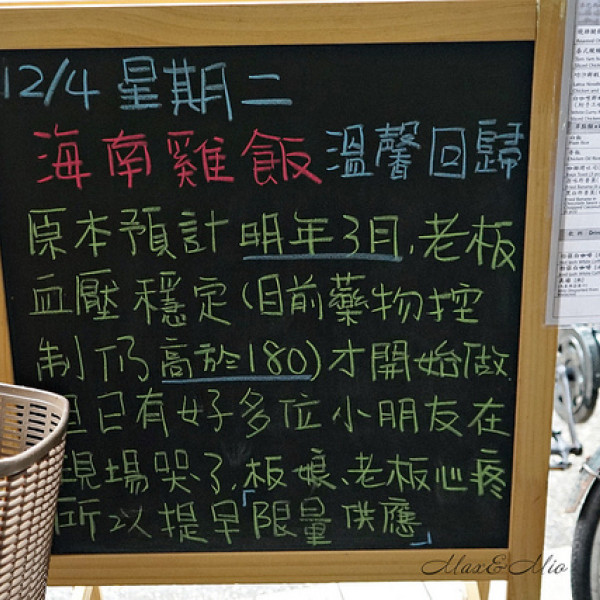 12/4 星期二
海南雞飯 溫馨回歸
原本預計明年3月,老板
血壓穩定(目前藥物控
制仍高於180)才開始做
但已有好多位小朋友在
現場哭了,板娘、老板心疼
所以提早「限量供應」
Max&Mio